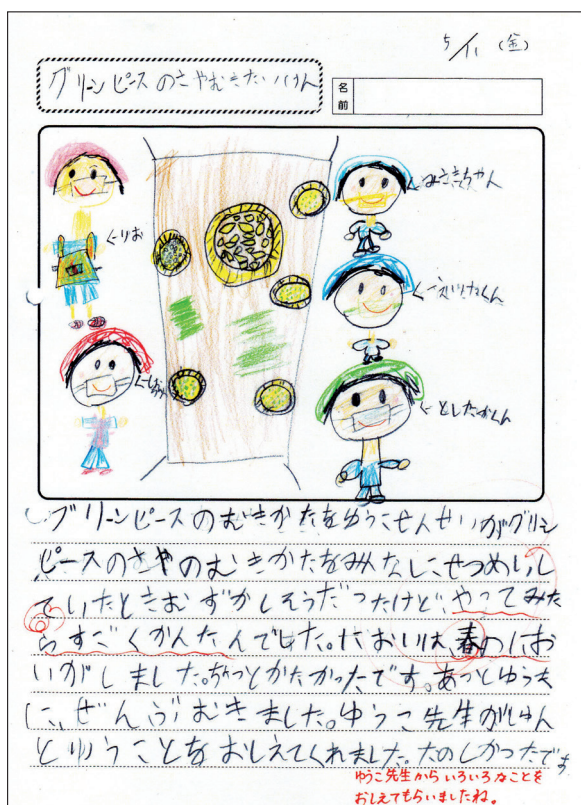 5/11 (金)
グリーンピースのさやむきたいけん
名前
←りお
←しほみ
みさきちゃん
←えいけたくん
←としたかくん
グリーンピースのむきかたをゆうこせんせいがグリーン
ピースのさやのむきかたをみんなにせつめいし
ていたときむずかしそうだったけど、やってみた
らすごくかんたんでした。においは、春のにお
いがしました。ちょっとかたかったです。あっとゆうま
に、ぜんぶむきました。ゆうこ先生がしゅん
とゆうことをおしえてくれました。たのしかったです
ゆうこ先生からいろいろなことを
おしえてもらいましたね。